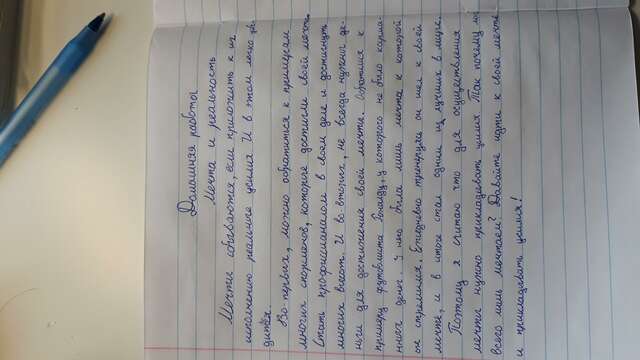 Домашняя работа
Мечта и реальность
Мечты сбываются, если приложить к их
исполнению реальные усилия. И в этом легко убе-
диться.
Во первых, можно обратиться к примерам
многих спорсменов, которые достигли своей мечты.
Стать профессианалом в своём деле и достигнуть
многих высот. И во вторых, не всегда нужног де-
ньги для достижения своей мечты. Обратимся к
примеру футболиста Роналду, у которого не было карма-
нных денег. У него была лишь мечта к которой
он стремился. Ежедневно тренируясь он шел к своей
мечте, и в итоге стал одним из лучших в мире.
Поэтому я считаю что для осуществления
мечты нужно прикладывать усилия. Так почему мы
всего лишь мечтаем? Давайте идти к своей мечте
и прикладывать усилия!